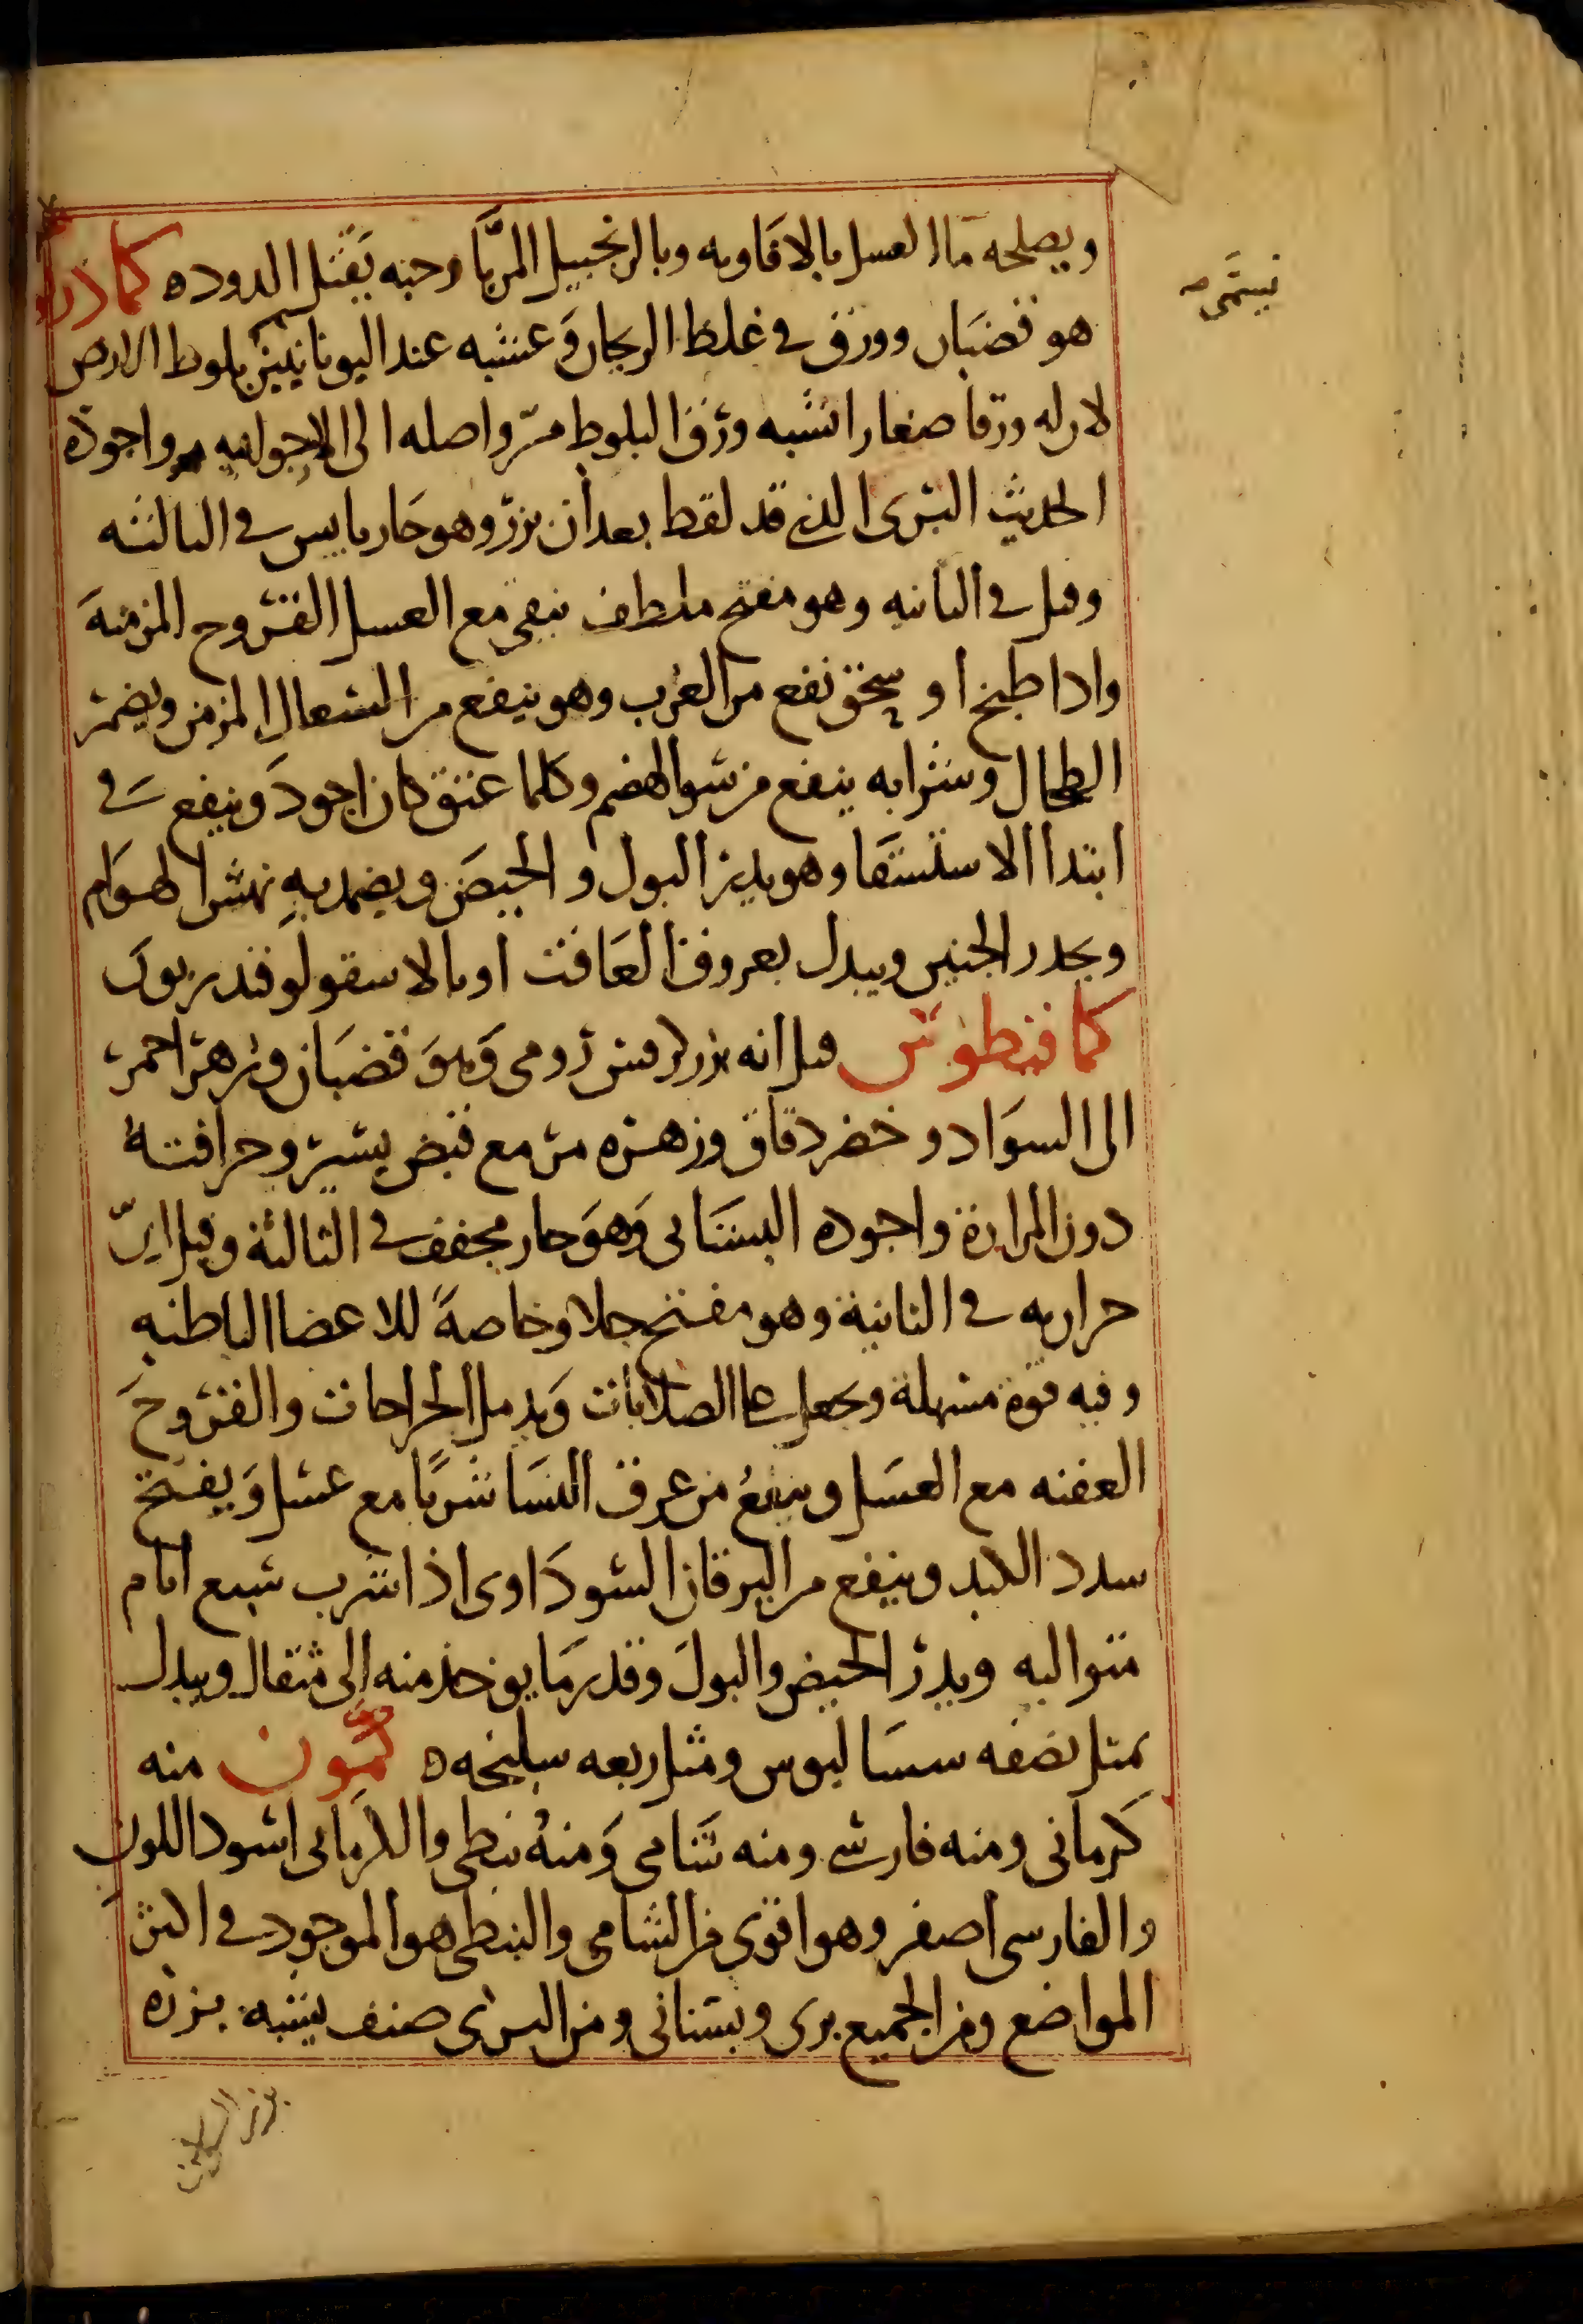 ويصلحه ماا العسل بالافاويه وبالزنجبيل المربَّا وحبه يقتل الدود ه كمادر
هو قضبان وورق في غلظ الريحان وعشبه عند اليونانيين بلوط الارض
لان له ورقا صغارا تشبه ورق البلوط مرّ واصله الى واجوده
الحديث البرى الذي قد لقط بعد أن بزر وهو حار يابس في الثالثه
وقيل في الثانيه وهو مفتح ملطف ينقي مع العسل القروح المزمنه
واذا طبخ او سحق نفع من الغرب وهو ينفع من السعال المزمن ويضمر
الطحال وشرابه ينفع من سو الهضم وكلما عتق كان اجود وينفع في
ابتدا الاستسقا وهو يدر البول والحيض ويضمد به نهش الهوام
ويحدر الجنين ويبدل بعروق الغافت او بالاسقولوقندريون
كمافيطوس قيل انه بزر كرفس رومي وهو قضبان وزهر احمر
الى السواد وخضر دقاق وزهره مر مع قبض يسير وحرافته
دون المرارة واجوده البستاني وهو حار مجفف في الثالثة وقيل ان
حرارته في الثانية وهو مفتح جلا وخاصةً للاعضا الباطنه
وفيه قوة مسهلة ويجعل على الصلابات ويدمل الجراحات والقروح
العفنه مع العسل وينفع من عرق النسا شربًا مع عسل ويفتح
سدد الكبد وينفع من اليرقان السوداوى اذا شرب سبع ايام
متواليه ويدر الحيض والبول وقدر ما يوخذ منه إلى مثقال ويبدل
بمثل نصفه سساليوس ومثل ربعه سليخه ه كمّون منه
كرماني ومنه فارسي ومنه شامي ومنه نبطي والكرماني اسود اللون
والفارسي اصفر وهو اقوى من الشامي والنبطي هو الموجود في اكثر
المواضع ومن الجميع برى وبستاني ومن البرى صنف يشبه بزره
بزر السوسن